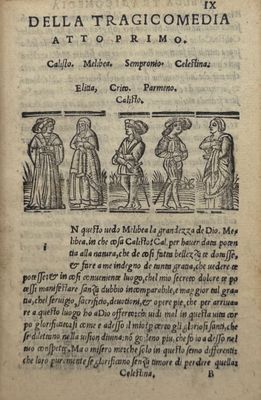 IX
DELLA TRAGICOMEDIA
ATTO PRIMO.
Calisto. Melibea. Sempronio. Celestina.
Elitia, Crito. Parmeno.
Calisto.
i N questo uedo Melibea la grandezza de Dio. Me-
libea, in che cosa Calisto? Cal. per hauer data poten
tia alla natura, che de cosi fatta bellezza te dotasse,
& fare a me indegno de tanta gratia, che uedere te
potesse: & in cosi conueniente luogo, chel mio secreto dolore te po
tessi manifestare senza dubbio incomparabile, e maggior tal gra-
tia, chel seruigio, sacrificio, deuotioni, & opere pie, che per arriuar
a questo luogo ho a Dio offerto: chi uidi mai in questa uita cor
po glorificato si come e adesso il mio? certo gli gloriosi santi, che
se dilettano nella uision diuina: nõ godeno piu, che fo io adesso nel
tuo conspetto. Ma o misero me che solo in questo semo differenti:
che loro puramente se glorificano senza timore di perdere quella:
Celestina. B